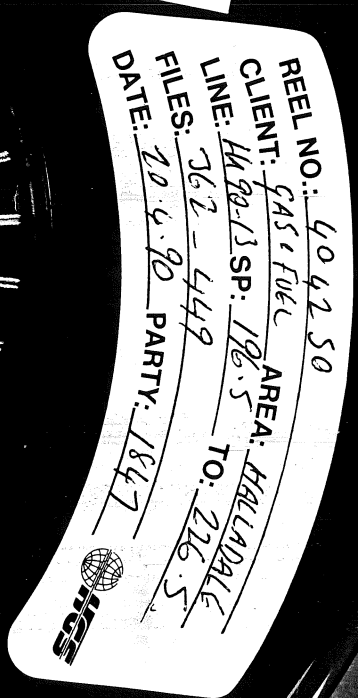 REEL NO.: 404250
CLIENT: GAS & FUEL AREA: HALLADALE
LINE: HA90-13 SP: 196.5 TO: 226.5
FILES: 362 - 449
DATE: 20.4.90 PARTY: 1847
HGS